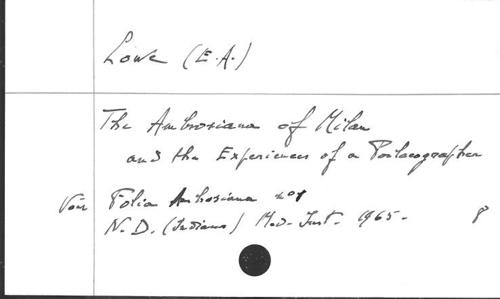 Lowe (E.A.)
The Ambrosiana of Milan
and the Experiences of a Palaeographer
Voir Folia Ambrosiana n°1
N.D. (Indiana) Med. Inst. 1965.